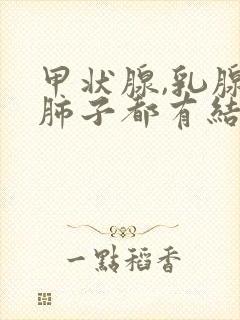 甲状腺,乳腺
肺子都有結
一點稻香